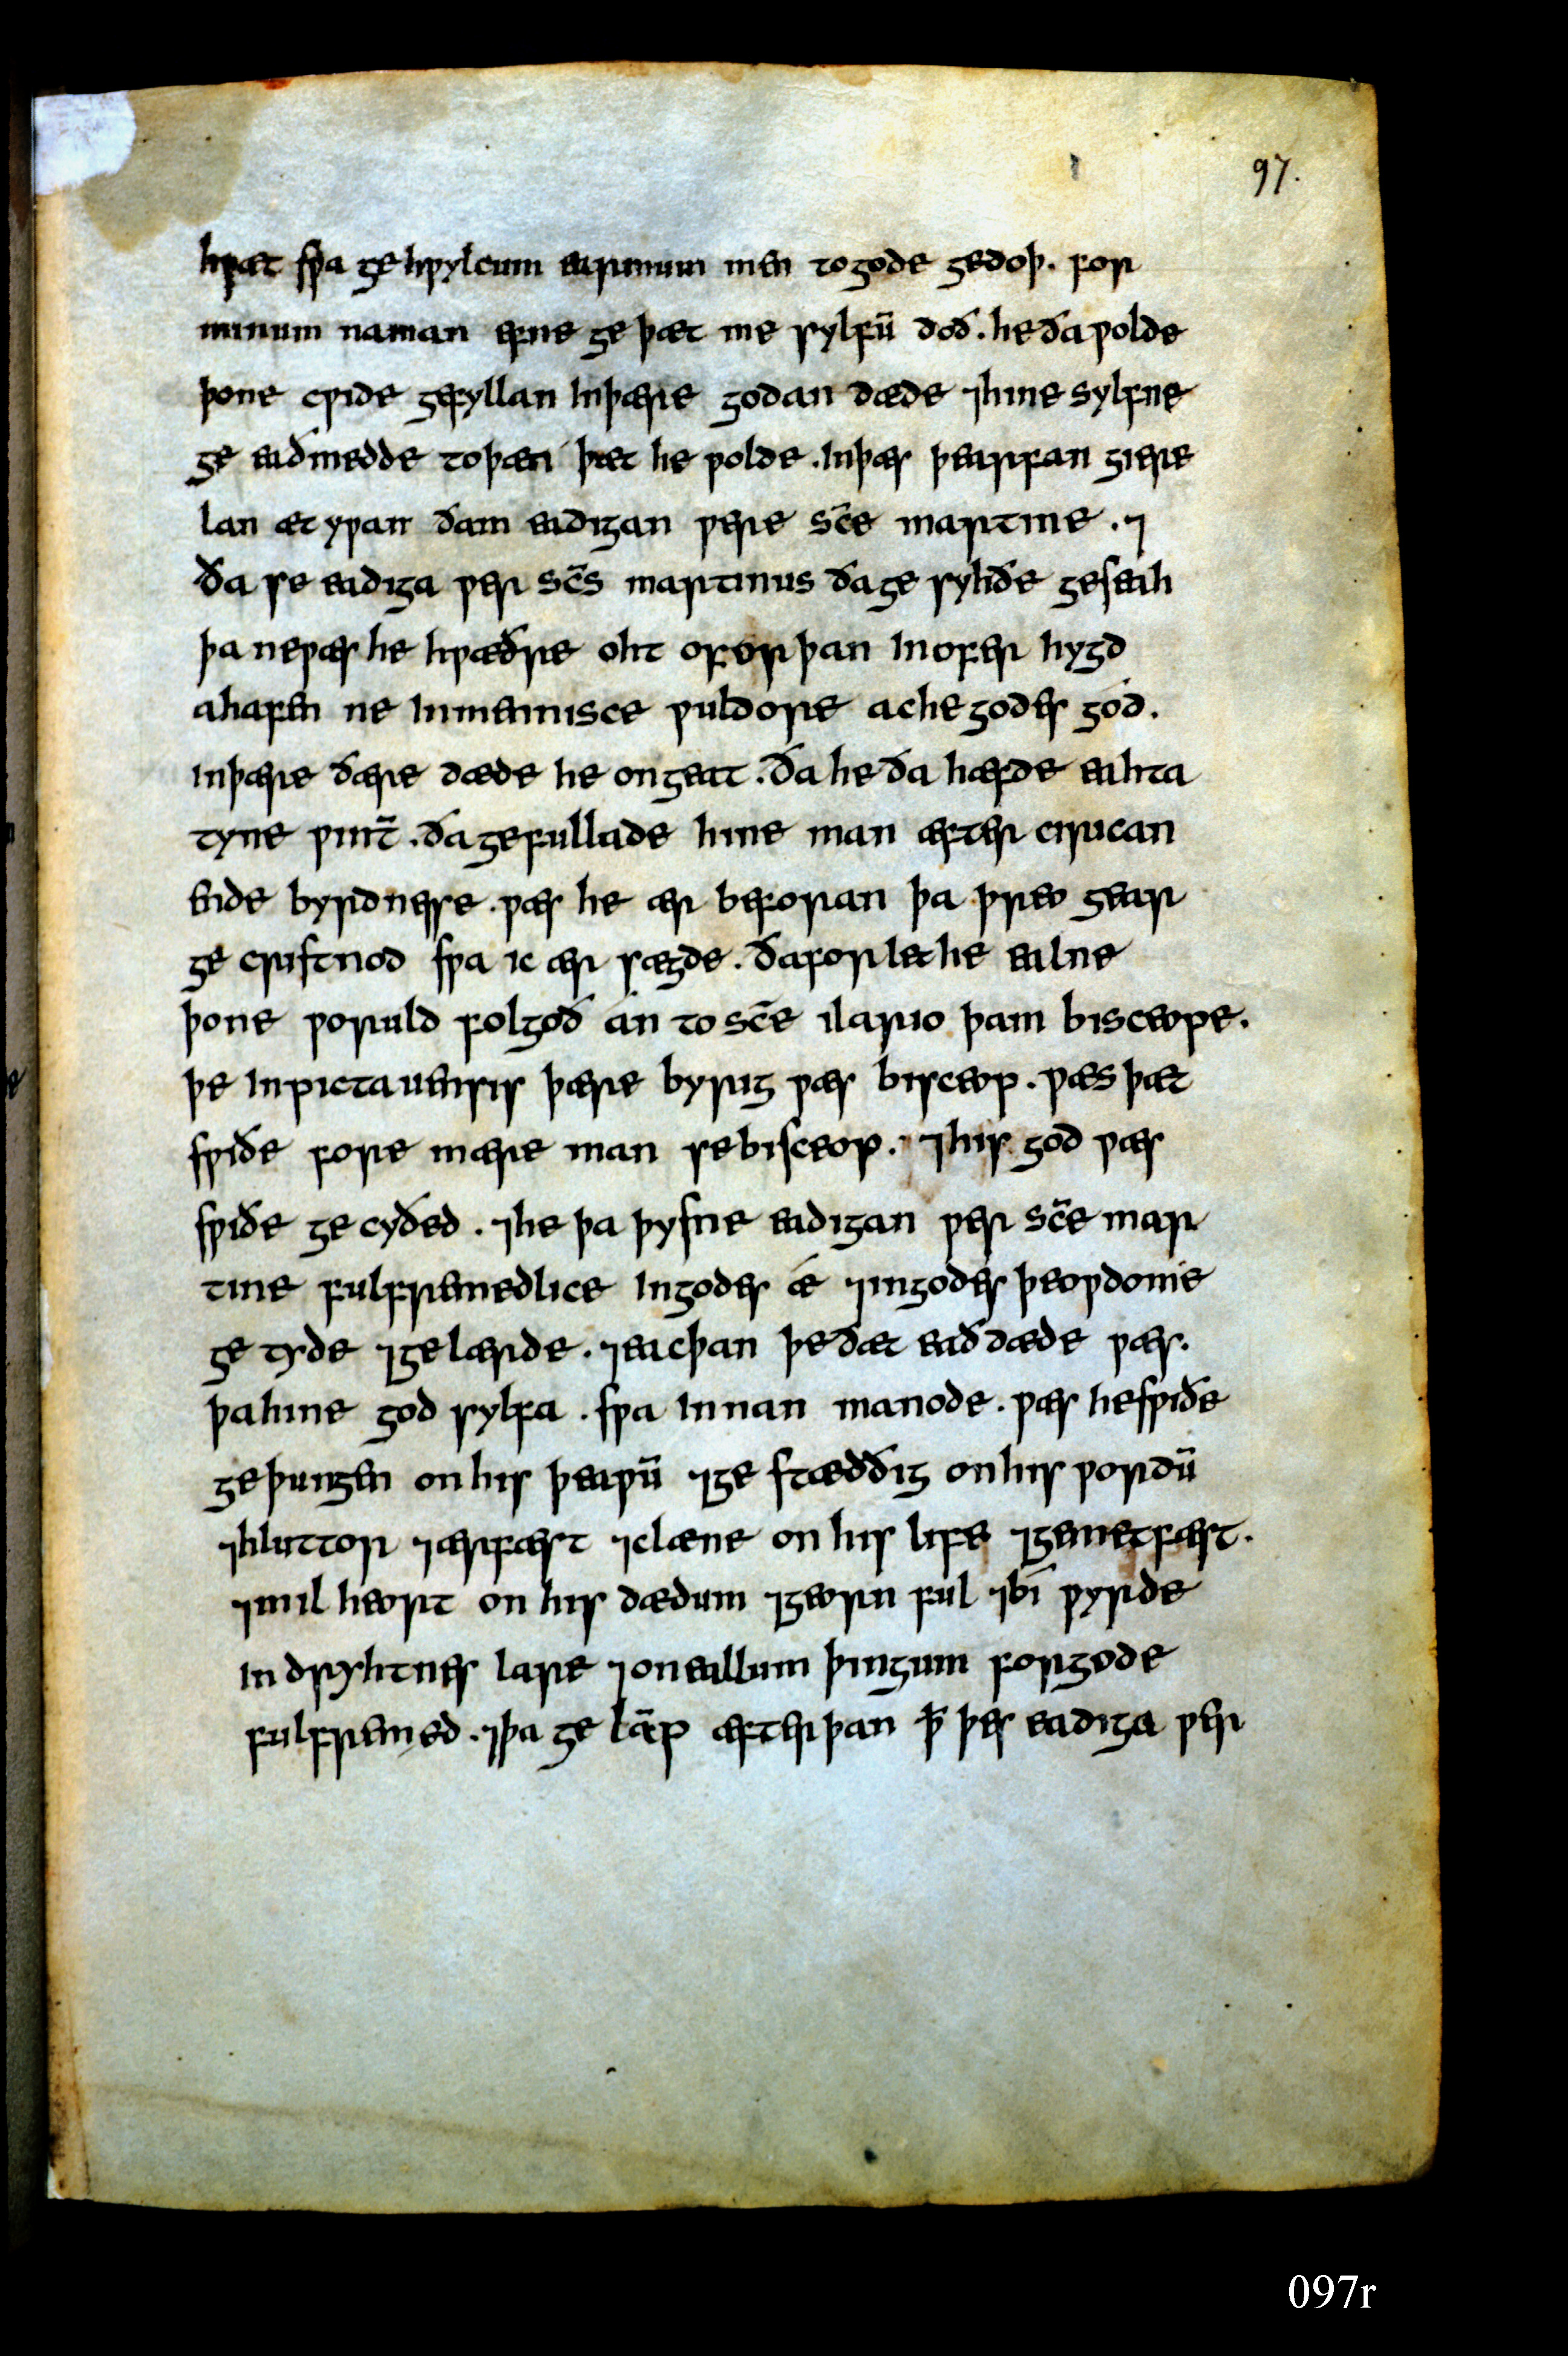 97.
hƿæt sƿa gehƿylcum earmum men to gode gedoþ. for
minum naman efne ge þæt me sylfū doð. he ða ƿolde
þone cƿide gefyllan in þære godan dæde ⁊ hine sylfne
ge eaðmedde to þæn þæt he ƿolde. in þæs þearfan giere
lan æt yƿan ðam eadigan ƿere sc̄e martine. ⁊
ða se eadiga ƿer sc̄s martinus ða gesyhðe geseah
þa ne ƿæs he hƿæðre oht ofor þan in ofer hygd
ahafen ne in mennisce ƿuldore ac he godes gód.
in þære ðære dæde he ongeat. ða he ða hæfde eahta
tyne ƿint̄. ða gefullade hine man æfter cirican
ende byrdnesse. ƿæs he ær beforan þa þreo gear
ge cristnod sƿa ic ær sægde. ða forlet he ealne
þone ƿoruld folgoð án to sc̄e ilario þam bisceope.
þe in pictauensis þære byrig ƿæs bisceop. ƿæs þæt
sƿiðe fore mære man se bisceop. ⁊ his god ƿæs
sƿiðe ge cyðed. ⁊ he þa þysne eadigan ƿer sc̄e mar
tine fulfremedlice in godes ǽ ⁊ in godes þeoƿdome
ge tyde ⁊ gelærde. ⁊ eac þan þe ðæt eað dæde ƿæs.
þa hine god sylfa. sƿa innan manode. ƿæs he sƿiðe
geþungen on his þeaƿū ⁊ ge stæððig on his ƿordū
⁊ hluttor ⁊ ærfæst ⁊ clæne on his life ⁊ gemetfæst.
⁊ mil heort on his dædum ⁊ georn ful ⁊ bī ƿyrde
in dryhtnes lare ⁊ on eallum þingum for gode
fulfremed. ⁊ þa ge lāp æfter þan ꝥ þes eadiga ƿer
097r